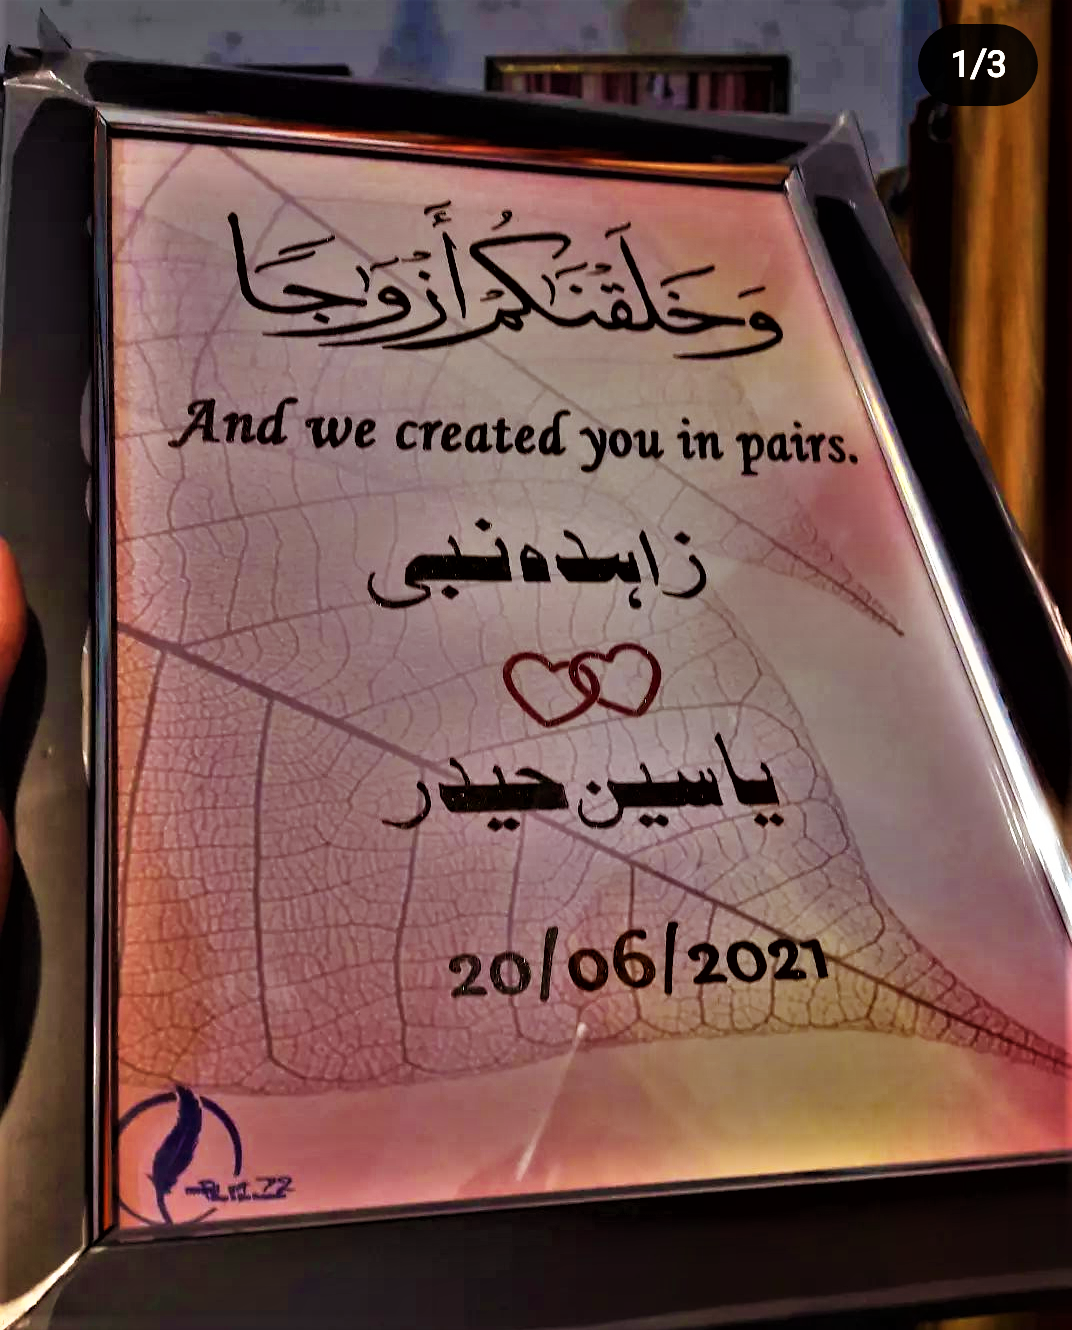 1/3
وَخَلَقْنَٰكُمْ أَزْوَٰجًا
And we created you in pairs.
زاہدہ نبی
یاسین حیدر
20/06/2021